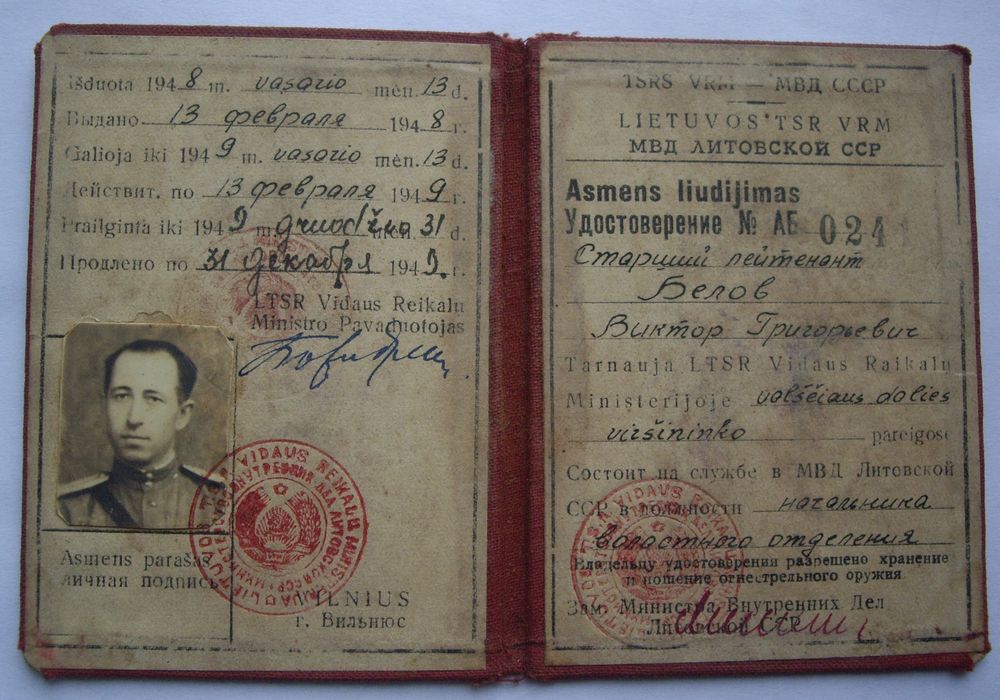 Išduota 1948 m. vasario mėn. 13 d.
Выдано 13 февраля 1948 г.
Galioja iki 1949 m. vasario mėn. 13 d.
Действит. по 13 февраля 1949 г.
Prailginta iki 1949 m. gruodžio mėn. 31 d.
Продлено по 31 декабря 1949 г.
LTSR Vidaus Reikalų
Ministro Pavaduotojas
VIDAUS REIKALŲ MINIS
Asmens parašas
личная подпись
VILNIUS
г. Вильнюс
TSRS VRM — МВД СССР
LIETUVOS TSR VRM
МВД ЛИТОВСКОЙ ССР
Asmens liudijimas
Удостоверение № АБ 024
Старший лейтенант
Белов
Виктор Григорьевич
Tarnauja LTSR Vidaus Raikalų
Ministerijoje valsčiaus dalies
viršininko pareigose
Состоит на службе в МВД Литовской
ССР в должности начальника
волостного отделения
Владельцу удостоверения разрешено хранение
и ношение огнестрельного оружия
Зам. Министра Внутренних Дел
Литовской ССР
VIDAUS RE